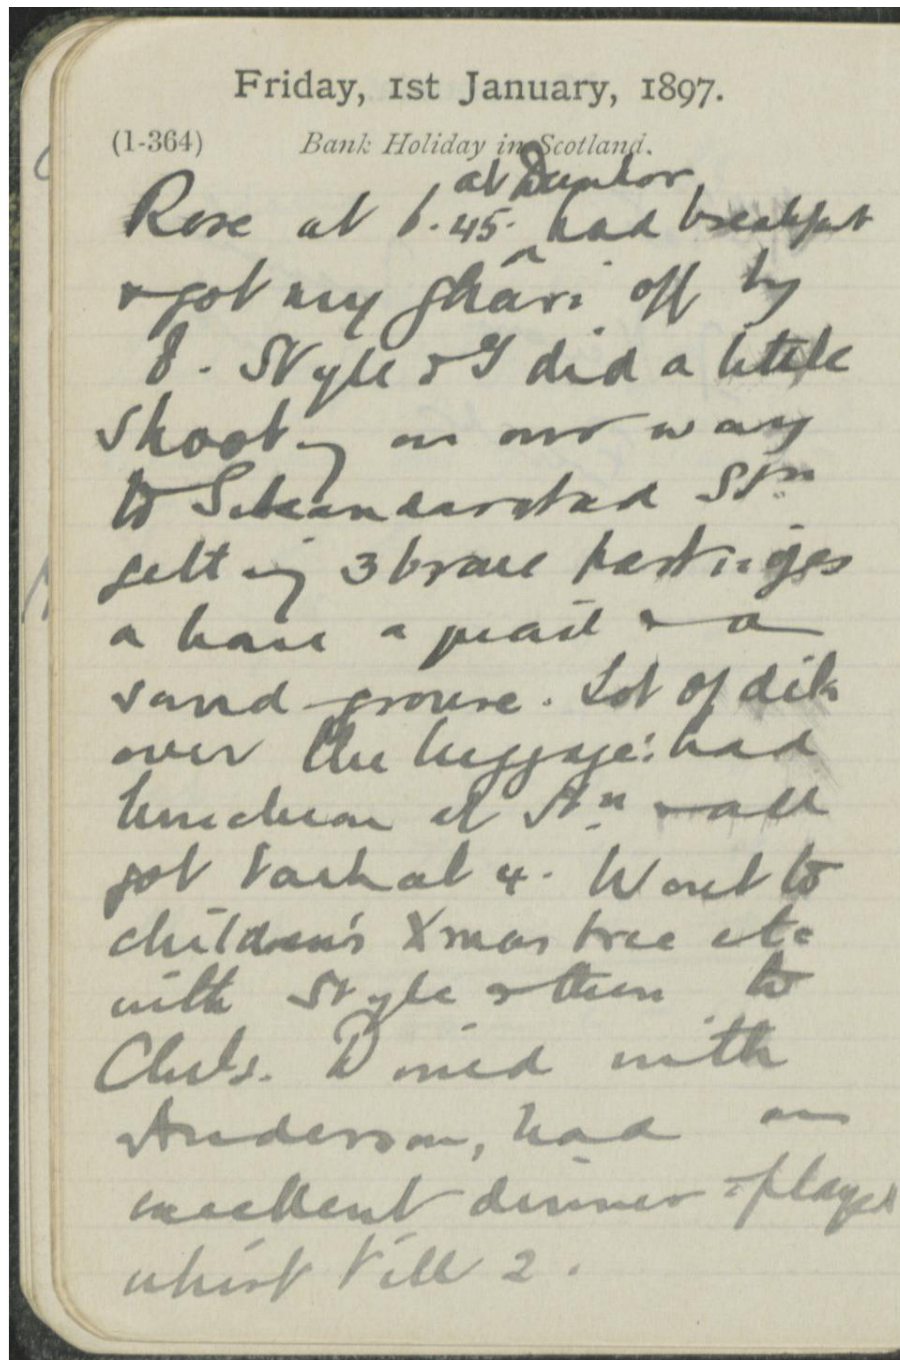 Friday, 1st January, 1897.
(1-364) Bank Holiday in Scotland.
at
Rose at 6.45. had breakfast
& got my ghari off by
8. Style & I did a little
shooting on our way
to Sikandarabad Stn
getting 3 brace partridges
a hare a quail & a
sand grouse. Lot of dik
over the luggage: had
luncheon at Stn & all
got back at 4. Went to
children's Xmas tree etc
with Style & then to
Club. Dined with
Anderson, had an
excellent dinner & played
whist till 2.